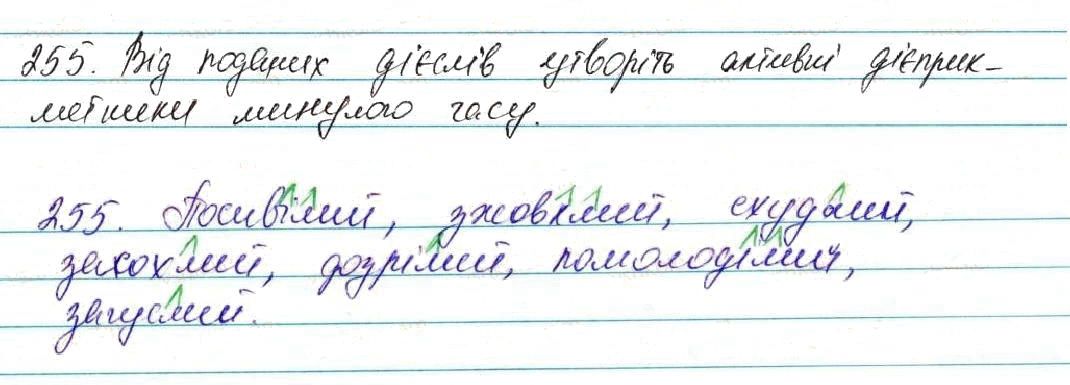 255. Від поданих дієслів утворіть активні дієприк-
метники минулого часу.
255. Посивілий, зжовклий, схудлий,
засохлий, дозрілий, помолоділий,
загуслий.